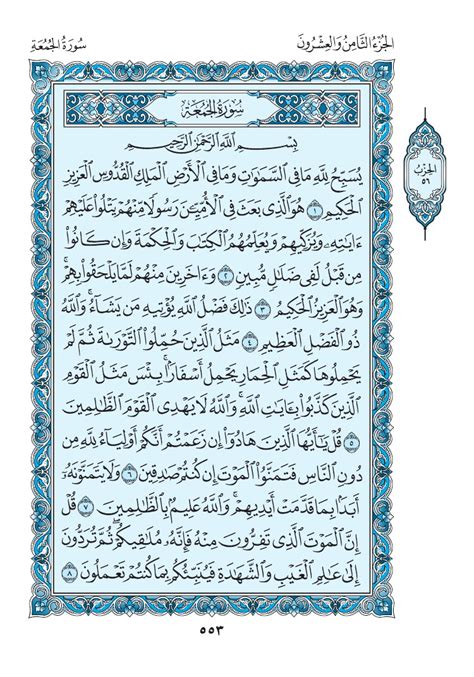 الجزء الثامن والعشرون
سورة الجمعة
سورة الجمعة
الحزب
٥٦
بِسْمِ ٱللَّهِ ٱلرَّحْمَٰنِ ٱلرَّحِيمِ
يُسَبِّحُ لِلَّهِ مَا فِي ٱلسَّمَٰوَٰتِ وَمَا فِي ٱلْأَرْضِ ٱلْمَلِكِ ٱلْقُدُّوسِ ٱلْعَزِيزِ
ٱلْحَكِيمِ ١ هُوَ ٱلَّذِي بَعَثَ فِي ٱلْأُمِّيِّـۧنَ رَسُولًا مِّنْهُمْ يَتْلُوا۟ عَلَيْهِمْ
ءَايَٰتِهِۦ وَيُزَكِّيهِمْ وَيُعَلِّمُهُمُ ٱلْكِتَٰبَ وَٱلْحِكْمَةَ وَإِن كَانُوا۟
مِن قَبْلُ لَفِي ضَلَٰلٍ مُّبِينٍ ٢ وَءَاخَرِينَ مِنْهُمْ لَمَّا يَلْحَقُوا۟ بِهِمْۚ
وَهُوَ ٱلْعَزِيزُ ٱلْحَكِيمُ ٣ ذَٰلِكَ فَضْلُ ٱللَّهِ يُؤْتِيهِ مَن يَشَآءُۚ وَٱللَّهُ
ذُو ٱلْفَضْلِ ٱلْعَظِيمِ ٤ مَثَلُ ٱلَّذِينَ حُمِّلُوا۟ ٱلتَّوْرَىٰةَ ثُمَّ لَمْ
يَحْمِلُوهَا كَمَثَلِ ٱلْحِمَارِ يَحْمِلُ أَسْفَارًۢاۚ بِئْسَ مَثَلُ ٱلْقَوْمِ
ٱلَّذِينَ كَذَّبُوا۟ بِـَٔايَٰتِ ٱللَّهِۚ وَٱللَّهُ لَا يَهْدِي ٱلْقَوْمَ ٱلظَّٰلِمِينَ
٥ قُلْ يَٰٓأَيُّهَا ٱلَّذِينَ هَادُوٓا۟ إِن زَعَمْتُمْ أَنَّكُمْ أَوْلِيَآءُ لِلَّهِ مِن
دُونِ ٱلنَّاسِ فَتَمَنَّوُا۟ ٱلْمَوْتَ إِن كُنتُمْ صَٰدِقِينَ ٦ وَلَا يَتَمَنَّوْنَهُۥٓ
أَبَدًۢا بِمَا قَدَّمَتْ أَيْدِيهِمْۚ وَٱللَّهُ عَلِيمٌۢ بِٱلظَّٰلِمِينَ ٧ قُلْ
إِنَّ ٱلْمَوْتَ ٱلَّذِي تَفِرُّونَ مِنْهُ فَإِنَّهُۥ مُلَٰقِيكُمْۖ ثُمَّ تُرَدُّونَ
إِلَىٰ عَٰلِمِ ٱلْغَيْبِ وَٱلشَّهَٰدَةِ فَيُنَبِّئُكُم بِمَا كُنتُمْ تَعْمَلُونَ ٨
٥٥٣